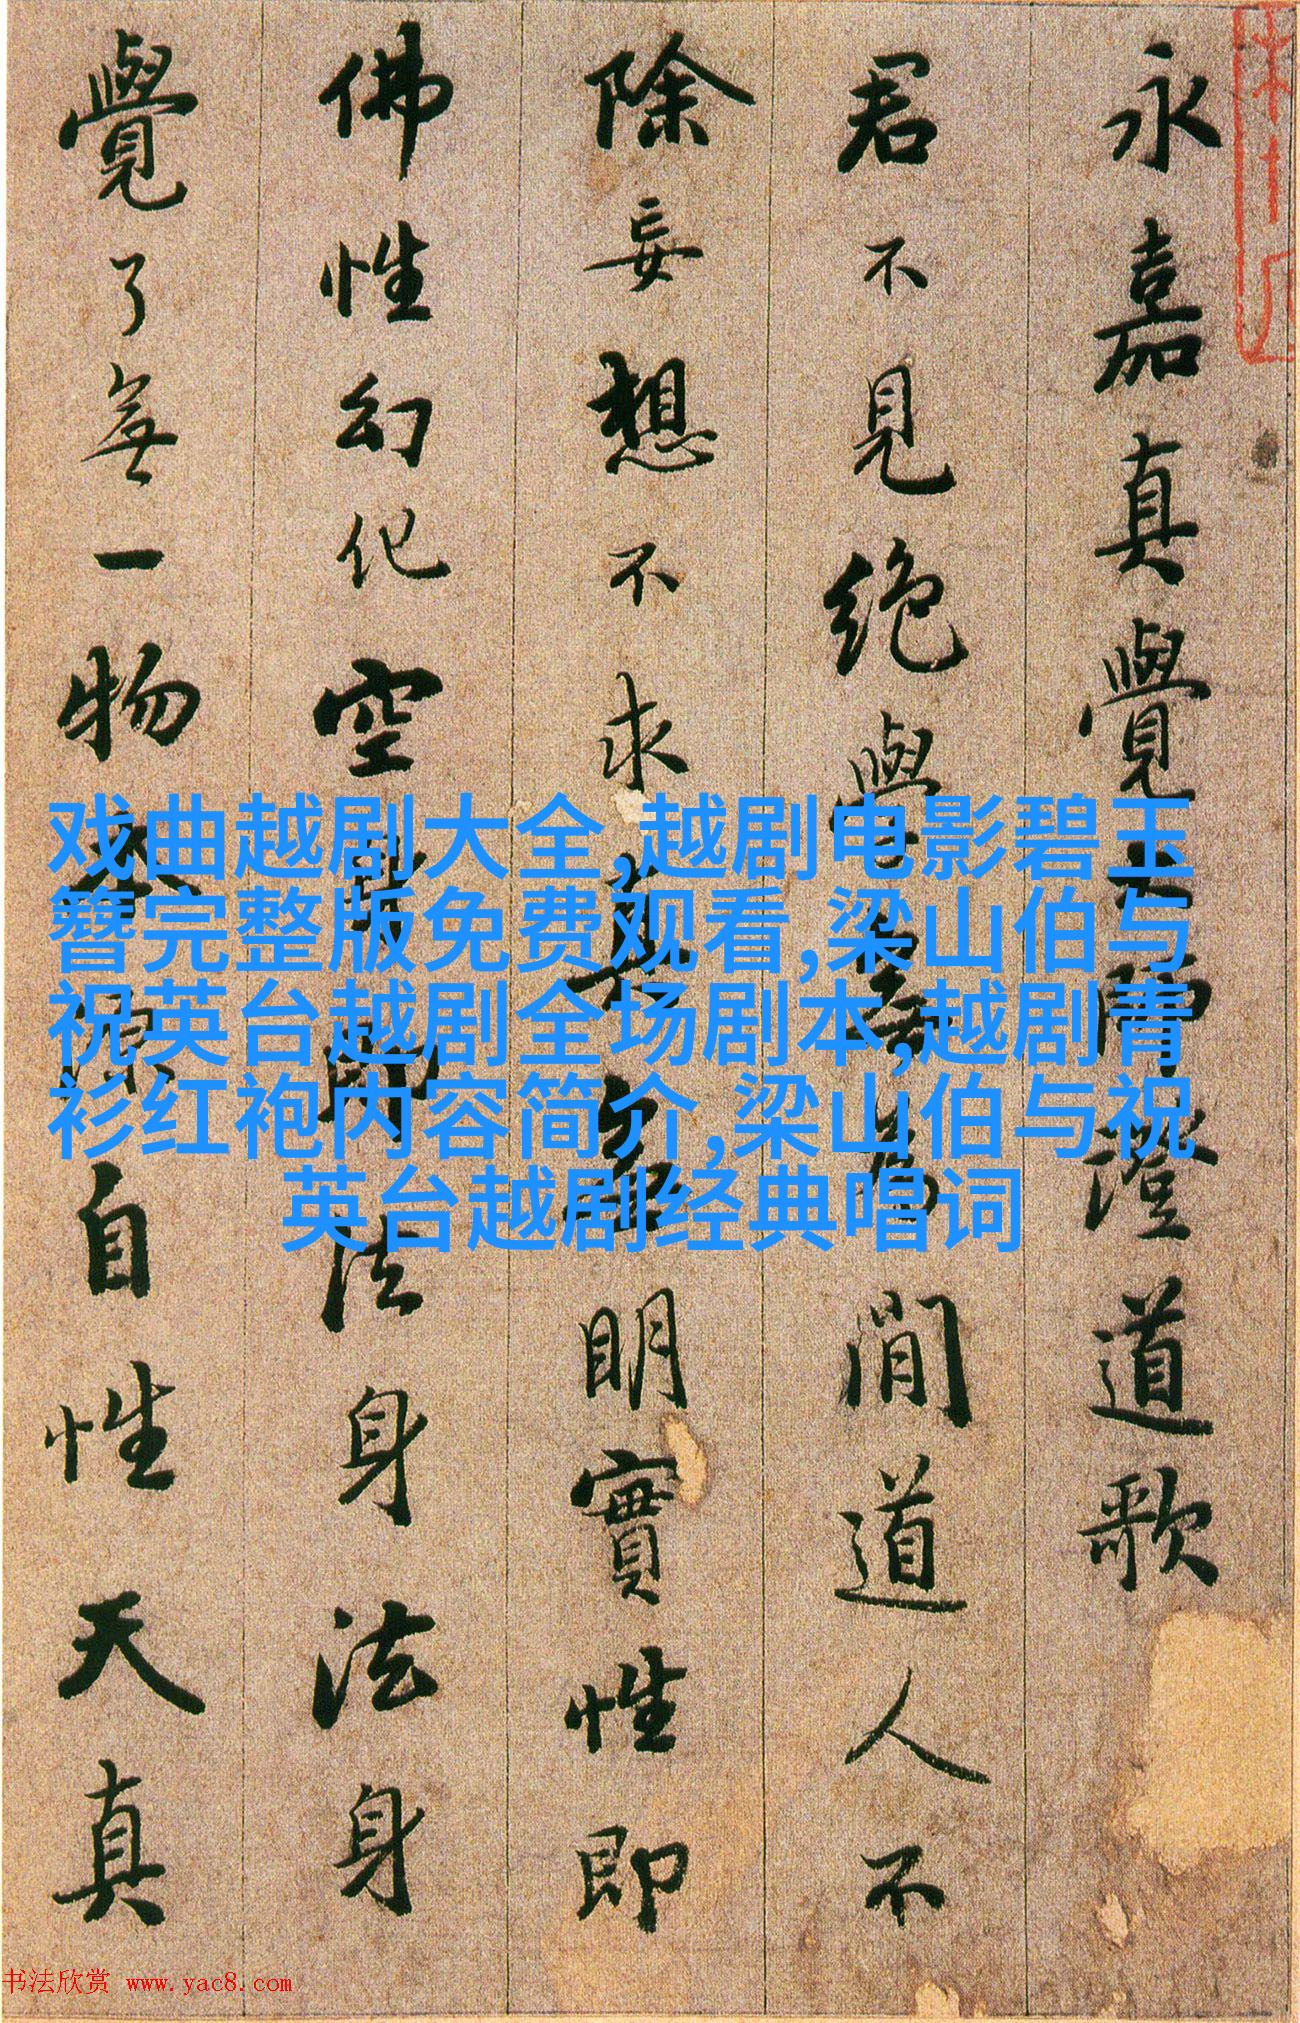 永嘉真覺大師證道歌
君不見絕學無為閒道人不
除妄想不求真無明實性即
佛性幻化空身即法身法身
覺了無一物本源自性天真
戏曲越剧大全,越剧电影碧玉
簪完整版免费观看,梁山伯与
祝英台越剧全场剧本,越剧青
衫红袍内容简介,梁山伯与祝
英台越剧经典唱词
书法欣赏 www.yac8.com